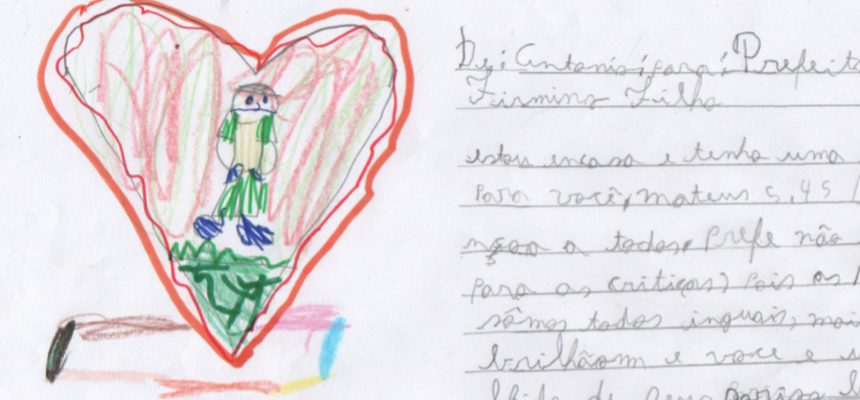 De: Antonio, para: Prefeito
Firmino Filho
estou encasa e tenho uma
Para você, mateus 5,45
a todos, Prefe não
para as criticas, pois as
sômos todos inguais, mais
brilhãom e voce e
de Deus porisso